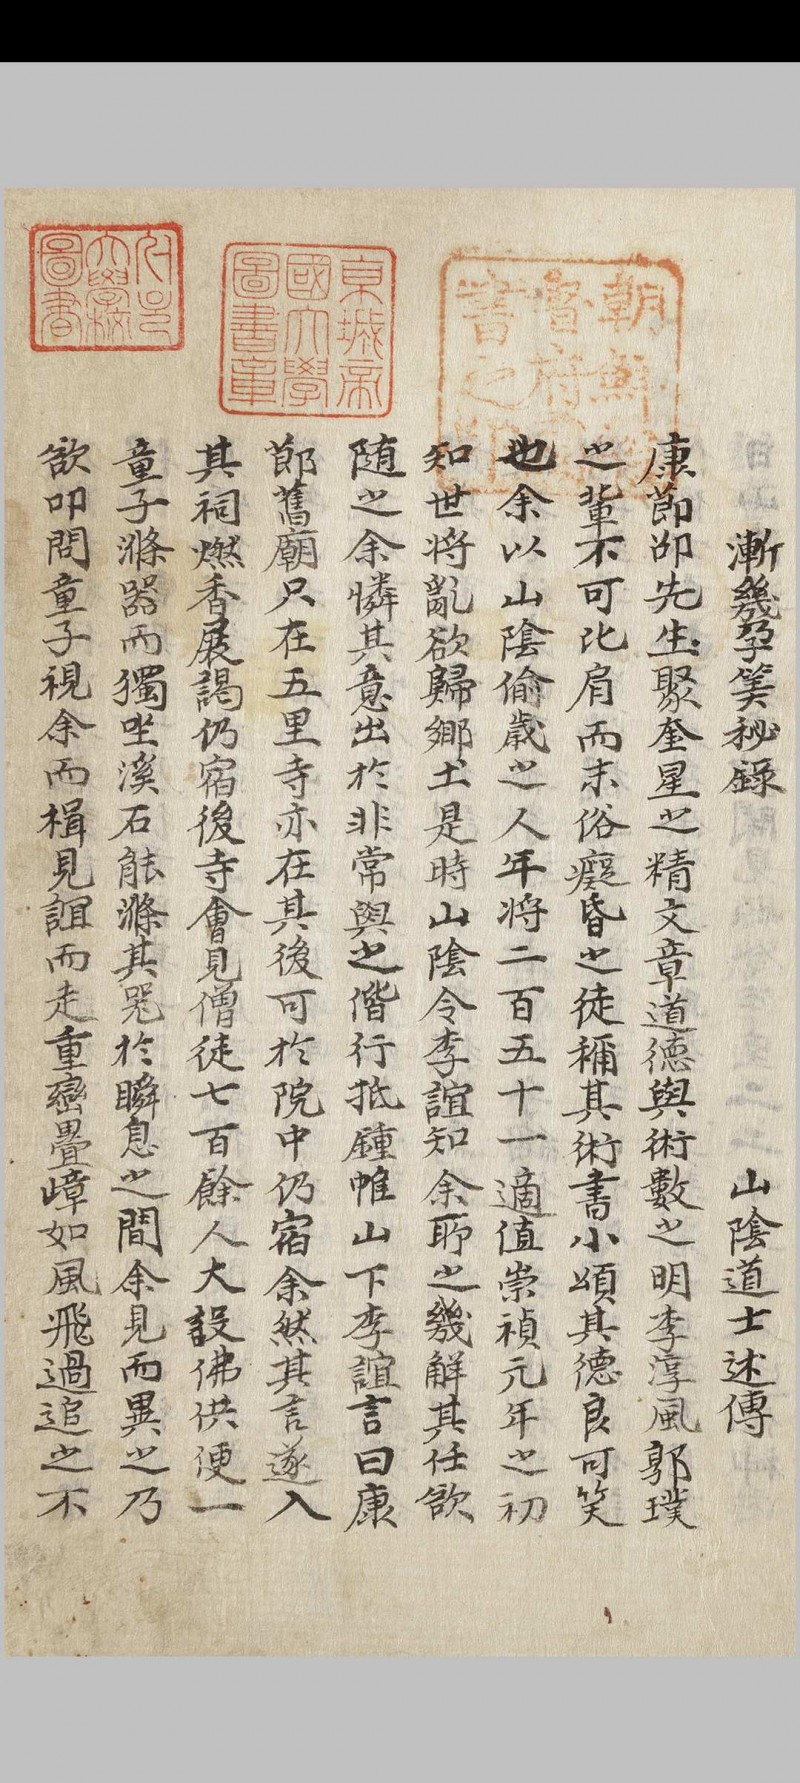 漸幾孕筭秘錄
山陰道士述傳
康莭邵先生聚奎星之精文章道德與術數之明李淳風郭璞
之輩不可比肩而末俗癡昏之徒稱其術書小頌其德良可笑
也余以山陰偷歲之人年將二百五十一適值崇禎元年之初
知世將亂欲歸鄉土是時山陰令李誼知余聊之幾解其任欲
随之余憐其意出於非常與之偕行抵鍾帷山下李誼言曰康
莭舊廟只在五里寺亦在其後可於院中仍宿余然其言遂入
其祠燃香展謁仍宿後寺會見僧徒七百餘人大設佛供便一
童子滌器而獨坐溪石能滌其器於瞬息之間余見而異之乃
欲叩問童子視余而楫見誼而走重巒疊嶂如風飛過追之不
朝鮮
書之印
京城帝
國大學
圖書章
大學校
圖書